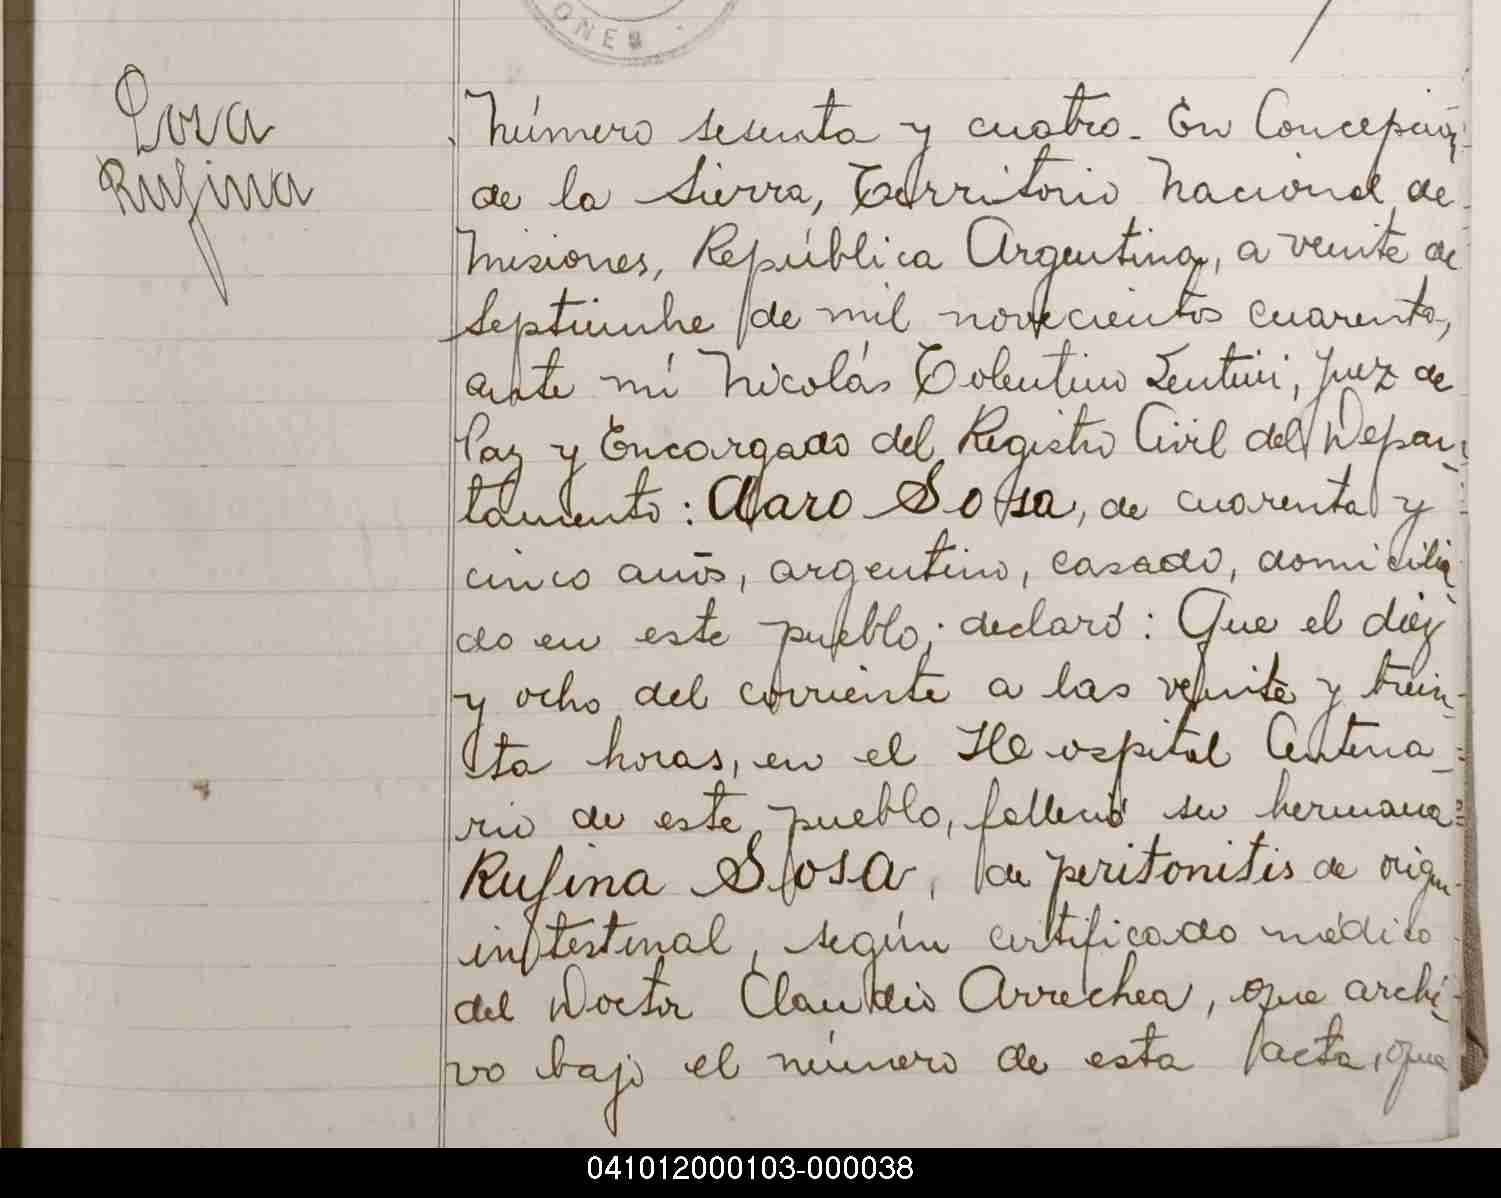 ONES
Sosa
Rufina
Número sesenta y cuatro. En Concepción
de la Sierra, Territorio Nacional de
Misiones, República Argentina, a veinte de
Septiembre de mil novecientos cuarenta,
ante mí Nicolás Tolentino Lentini, Juez de
Paz y Encargado del Registro Civil del Depar-
tamento: Claro Sosa, de cuarenta y
cinco años, argentino, casado, domicilia-
do en este pueblo; declaró: Que el diez
y ocho del corriente a las veinte y trein-
ta horas, en el Hospital Centena-
rio de este pueblo, falleció su hermana
Rufina Sosa, de peritonitis de origen
intestinal, según certificado médico
del Doctor Claudio Arrechea, que archi-
vo bajo el número de esta acta, que
041012000103-000038